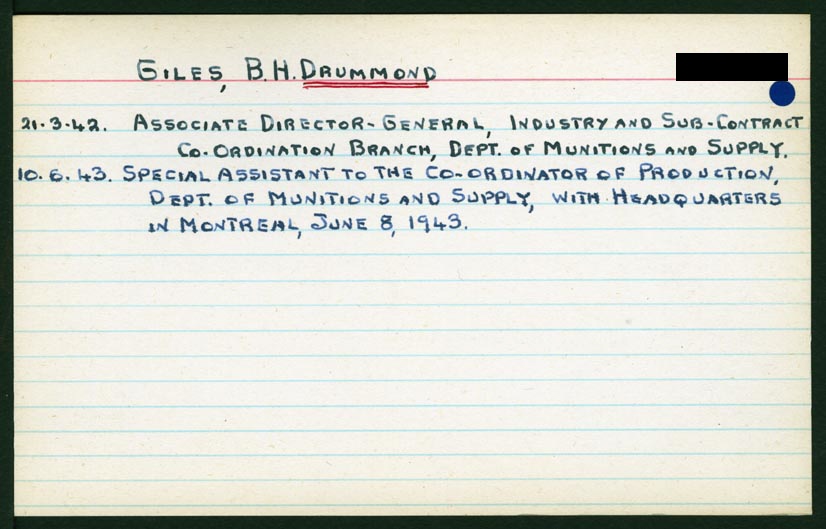 GILES, B.H. DRUMMOND
21-3-42. ASSOCIATE DIRECTOR-GENERAL, INDUSTRY AND SUB-CONTRACT
CO-ORDINATION BRANCH, DEPT. OF MUNITIONS AND SUPPLY.
10.6.43. SPECIAL ASSISTANT TO THE CO-ORDINATOR OF PRODUCTION,
DEPT. OF MUNITIONS AND SUPPLY, WITH HEADQUARTERS
IN MONTREAL, JUNE 8, 1943.